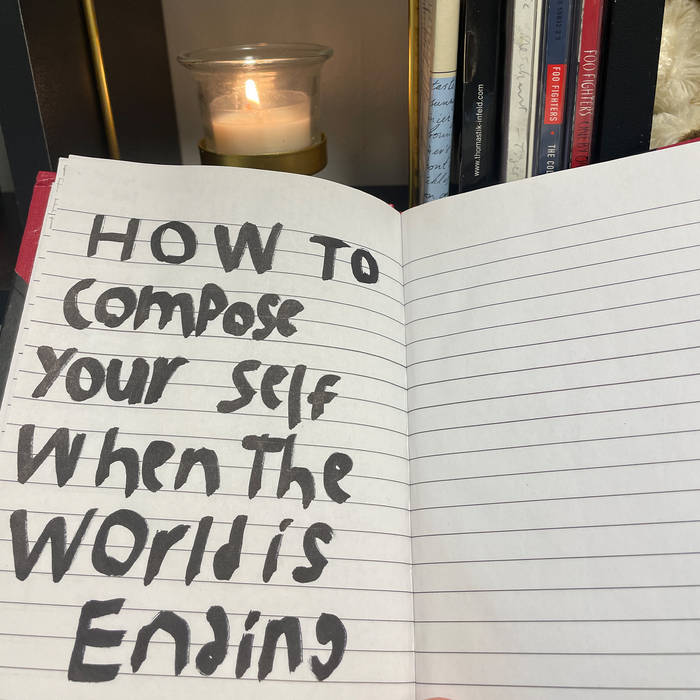 HOW TO
COMPOSE
YOUR SELF
WHEN THE
WORLD IS
ENDING
www.thomastik-infeld.com
FOO FIGHTERS
THE CO
FOO FIGHTERS